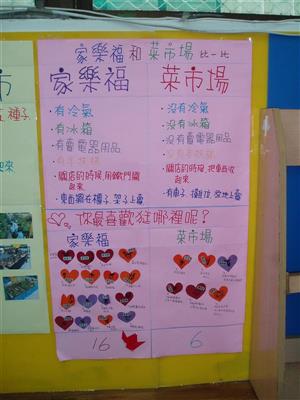 家樂福 和 菜市場 比一比
家樂福 菜市場
•有冷氣 •沒有冷氣
•有冰箱 •沒有冰箱
•有賣電器用品 •沒有賣電器用品
•有手扶梯 •沒有手扶梯
•關店的時候,用鐵門關起來 •關店的時候,把東西收起來
•東西擺在櫃子、架子上賣 •有車子、攤位、放地上賣
你最喜歡逛哪裡呢?
家樂福 菜市場
16 6
市
種子
起來